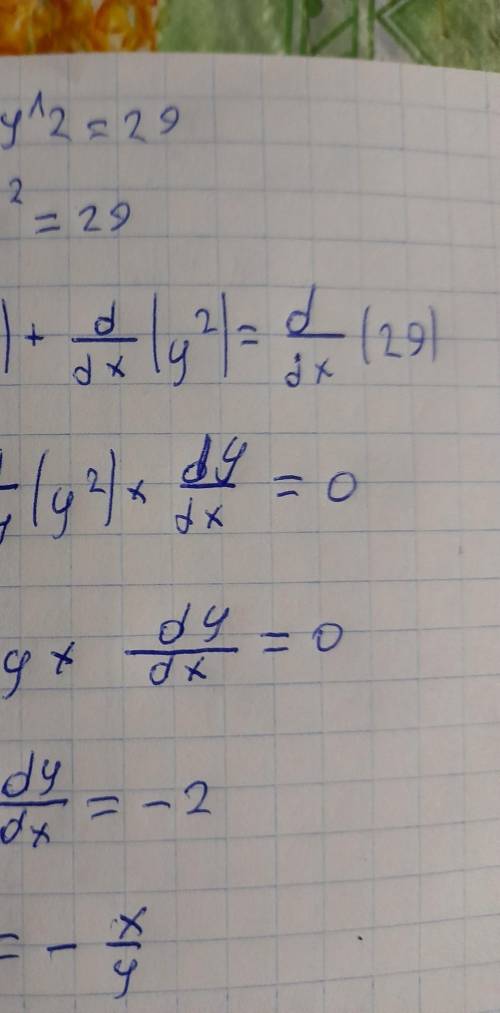 y^2 = 29
² = 29
) + d/dx (y²) = d/dx (29)
(y²) × dy/dx = 0
y × dy/dx = 0
dy/dx = -2
= - x/y